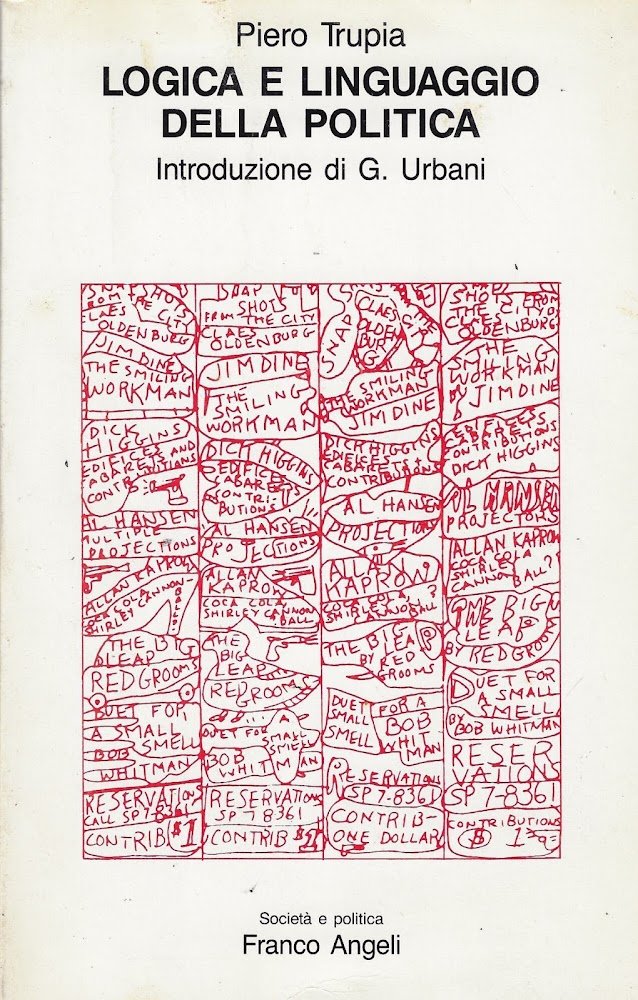 Piero Trupia
LOGICA E LINGUAGGIO
DELLA POLITICA
Introduzione di G. Urbani
SNAPSHOTS
FROM THE CITY
CLAES
OLDENBURG
JIM DINE
THE SMILING
WORKMAN
DICK
HIGGINS
EDIFICES
CABARETS AND
CONTRIBUTIONS
AL HANSEN
MULTIPLE
PROJECTIONS
ALLAN KAPROW
COCA COLA
SHIRLEY CANNON-
BALL?
THE BIG
LEAP
RED GROOMS
DUET FOR
A SMALL
SMELL
BOB
WHITMAN
RESERVATIONS
CALL SP7-8361
CONTRIB $1
SNAP
SHOTS
FROM THE CITY
CLAES
OLDENBURG
JIM DINE
THE
SMILING
WORKMAN
DICK HIGGINS
EDIFICES
CABARETS
CONTRI-
BUTIONS
AL HANSEN
PROJECTIONS
ALLAN
KAPROW
COCA COLA
SHIRLEY CANNON
BALL
THE
BIG
LEAP
RED GROOMS
DUET FOR A
SMALL
SMELL
BOB
WHITMAN
RESERVATIONS
SP 7 8361
CONTRIB $1
SNAP
CLAES
OLDEN
BUR
G
THE SMILING
WORKMAN
JIM DINE
DICK HIGGINS
EDIFICES
CABARETS
CONTRIBUTIONS
AL HANSEN
PROJECTIONS
ALLAN
KAPROW
THE BIG
LEAP
BY RED
GROOMS
DUET FOR A
SMALL
SMELL
BOB
WHIT
MAN
RESERVATIONS
SP 7-8361
CONTRIB-
ONE DOLLAR
SNAP
SHOTS FROM
THE CITY
CLAES
OLDENBURG
THE
SMILING
WORKMAN
BY
JIM DINE
CABARETS
CONTRIBUTIONS
DICK HIGGINS
AL HANSEN
PROJECTORS
ALLAN KAPROW
COCA COLA
SHIRLEY
CANNON BALL?
THE BIG
LEAP
BY RED GROOMS
DUET FOR
A SMALL
SMELL
BY BOB WHITMAN
RESER
VATIONS
SP 7-8361
CONTRIBUTIONS
$ 1
Società e politica
Franco Angeli